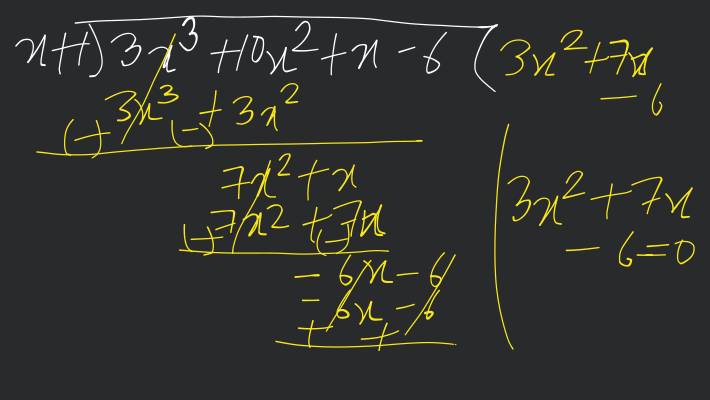 x+1) 3x³ +10x² + x - 6 ( 3x² + 7x - 6
3x³ + 3x²
(-) (-)
7x² + x
7x² + 7x
(-) (-)
- 6x - 6
- 6x - 6
+ +
3x² + 7x
- 6 = 0